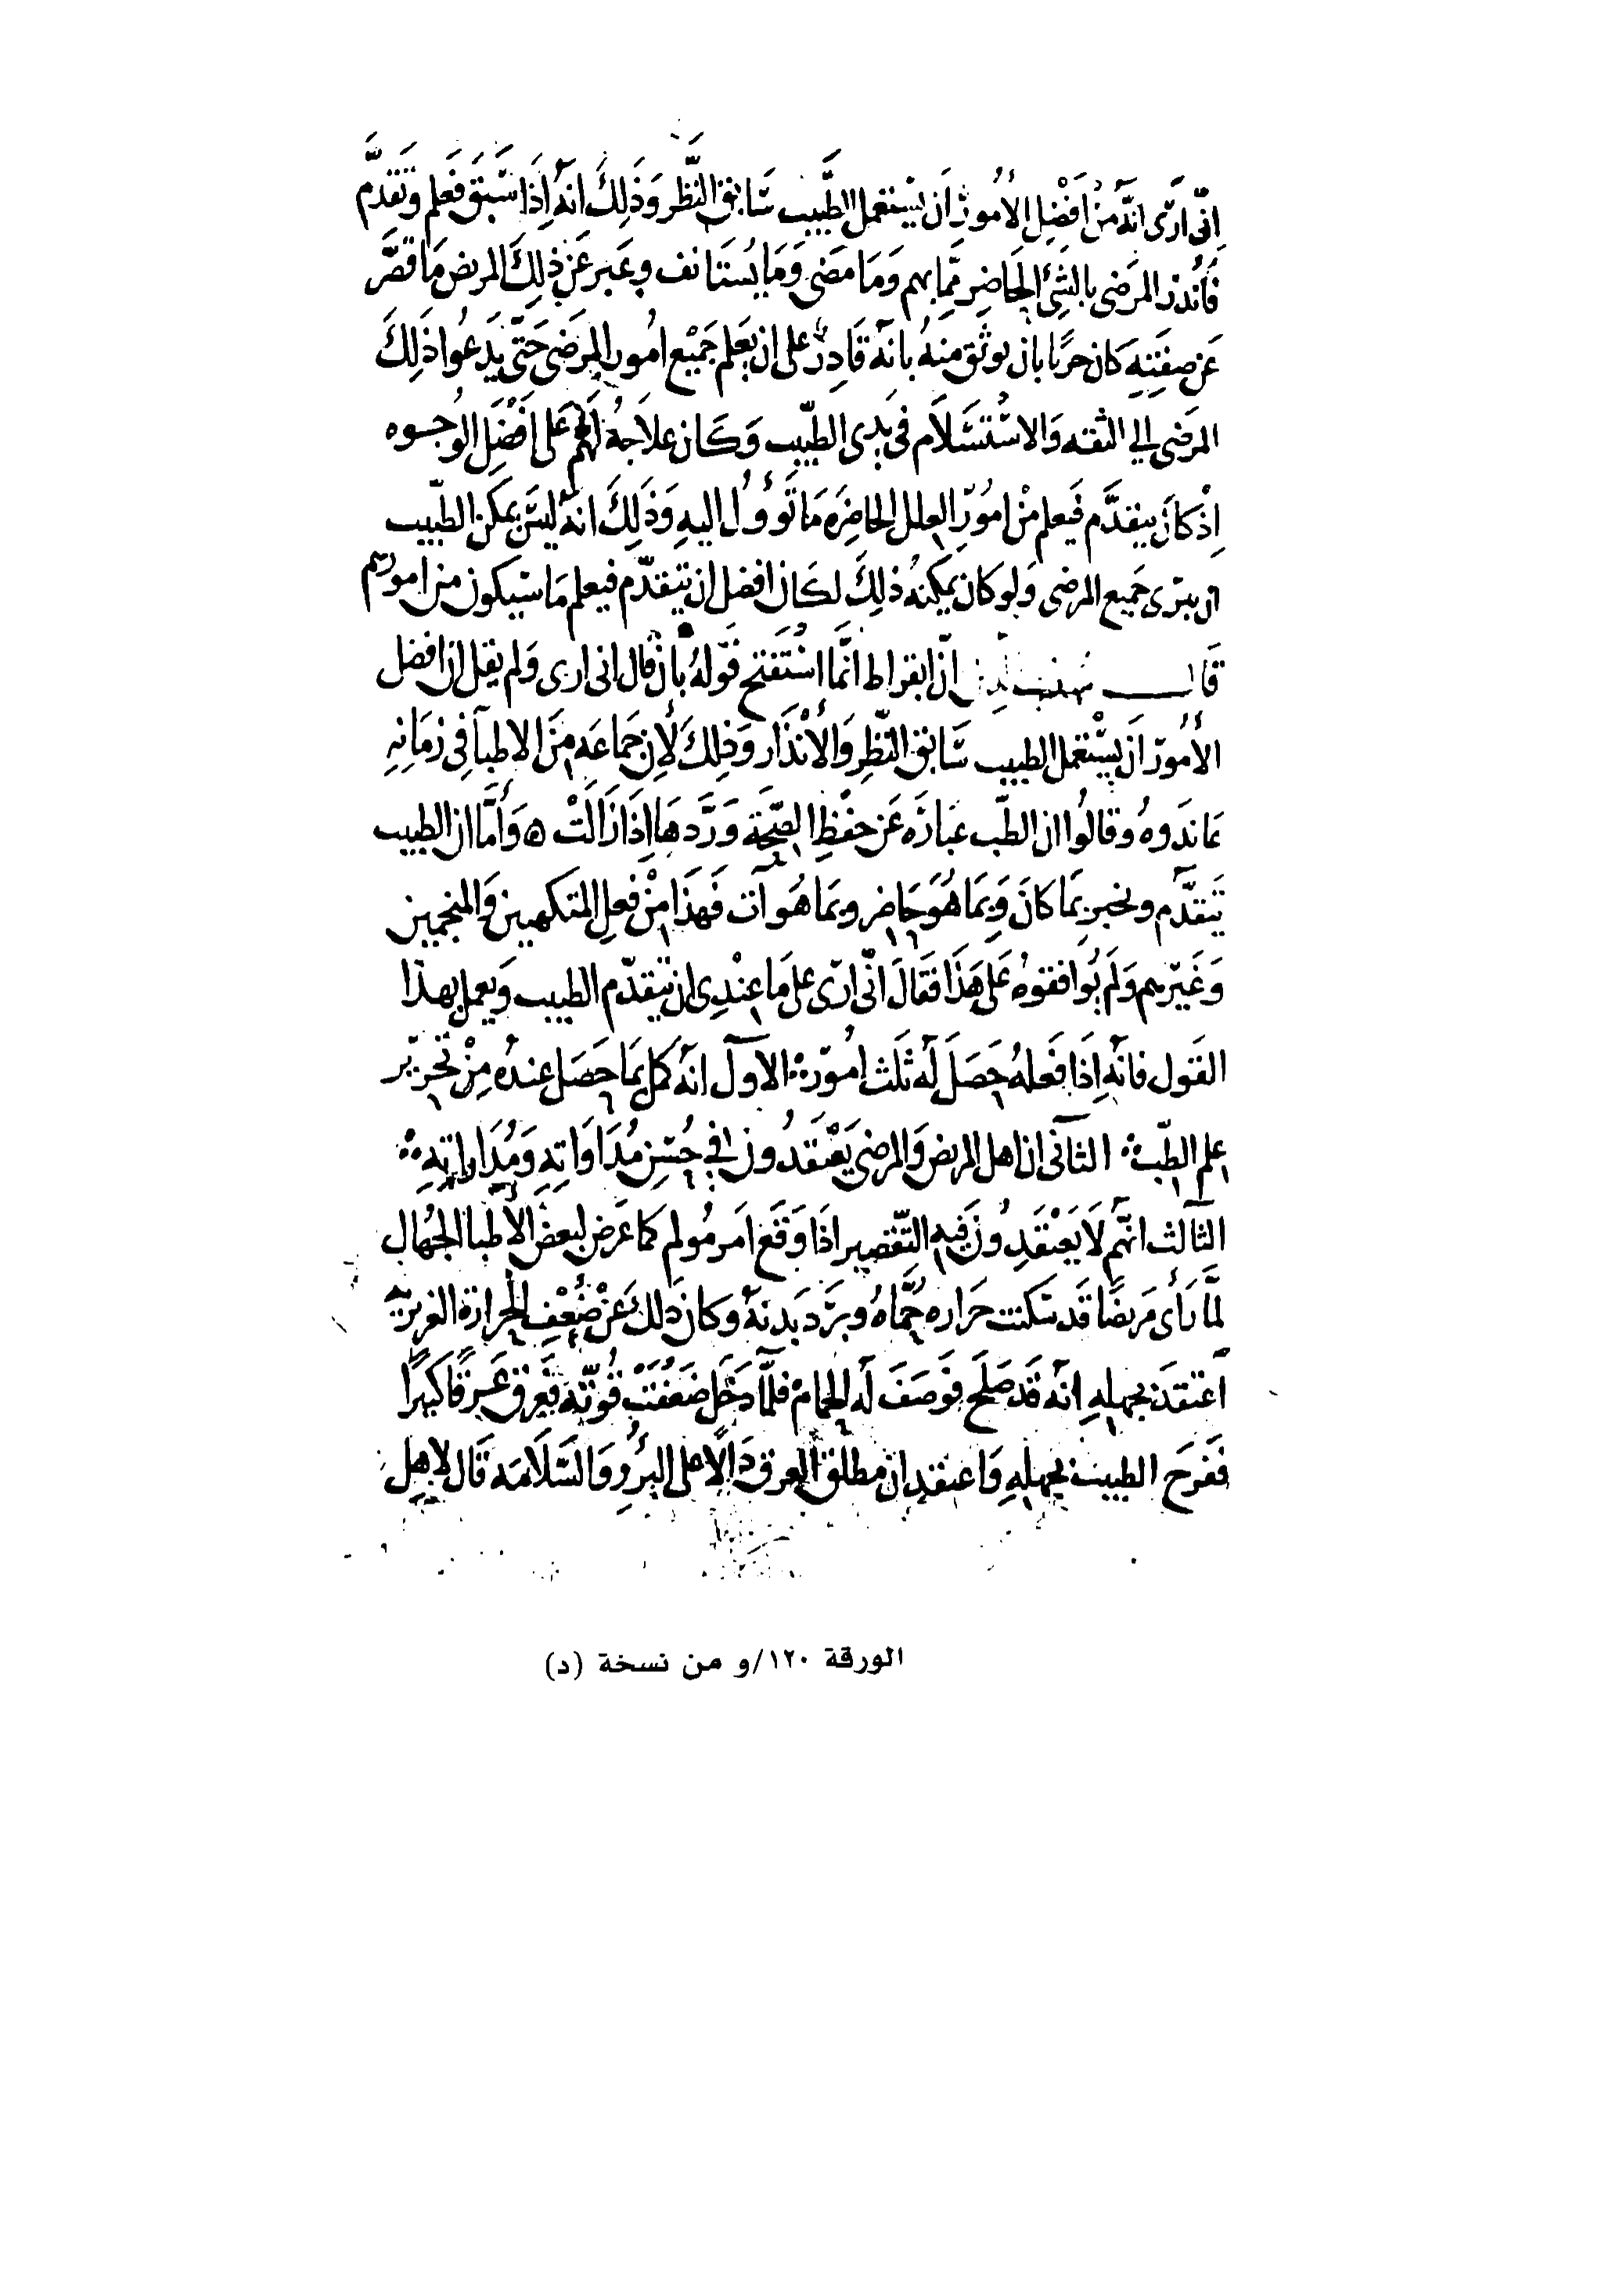 إنّي أرى انه من أفضل الأمور أن يستعمل الطبيب سابق النظر وذلك انه إذا سبق فعلم وتقدّم
فأنذر المرضى بالشئ الحاضر ممّا بهم وما مضى وما يستانف وعبر عن ذلك المريض ما قصّر
عن صفته كان حريا بان يوثق منه بانه قادر على ان يعلم جميع امور المرضى حتى يدعوا ذلك
المرضى إلي الثقه والاستسلام في يدى الطبيب وكان علاجه لهم على أفضل الوجوه
إذ كان يتقدّم فيعلم من امور العلل الحاضره ما تؤول اليه وذلك انه ليس يمكن الطبيب
ان يبرى جميع المرضى ولو كان يمكنه ذلك لكان افضل ان يتقدّم فيعلم ما سيكون من امورهم
قال ان ابقراط انّما استفتح قوله بان قال انى ارى ولم يقل ان افضل
الأمور أن يستعمل الطبيب سابق النظر والأنذار وذلك لأن جماعه من الاطبا في زمانه
عاندوه وقالوا ان الطب عباره عن حفظ الصّحة وردها إذا زالت ه وأمّا ان الطبيب
يتقدّم ويخبر بما كان وبما هو حاضر وبما هو آت فهذا من فعل المتكهنين والمنجمين
وغيرهم ولم يوافقوه على هذا فقال انّى ارى على ما عندى ان يتقدّم الطبيب ويعمل بهذا
القول فانه إذا فعله حصل له ثلث امور الاول انه كمل بما حصل عنده من تحرير
علم الطّب الثانى ان اهل المريض والمرضى يعتقدون في حسن مداواته ومداراته
الثالث انهم لا يعتقدون فيه التقصير اذا وقع امر مولم كما عرض لبعض الأطبا الجهال
لمّا رأى مريضا قد سكنت حراره حمّاه وبرد بدنه وكان ذلك عن ضعف الحرارة الغريزية
اعتقد بجهله انه قد صلح فوصف له الحمام فلمّا دخل ضعفت قوّته فعرق عرقا كبرا
ففرح الطبيب بجهله واعتقد ان مطلق العرق دالا على البرؤ والسلامه قال لاهل
الورقة ١٢٠/و من نسخة (د)